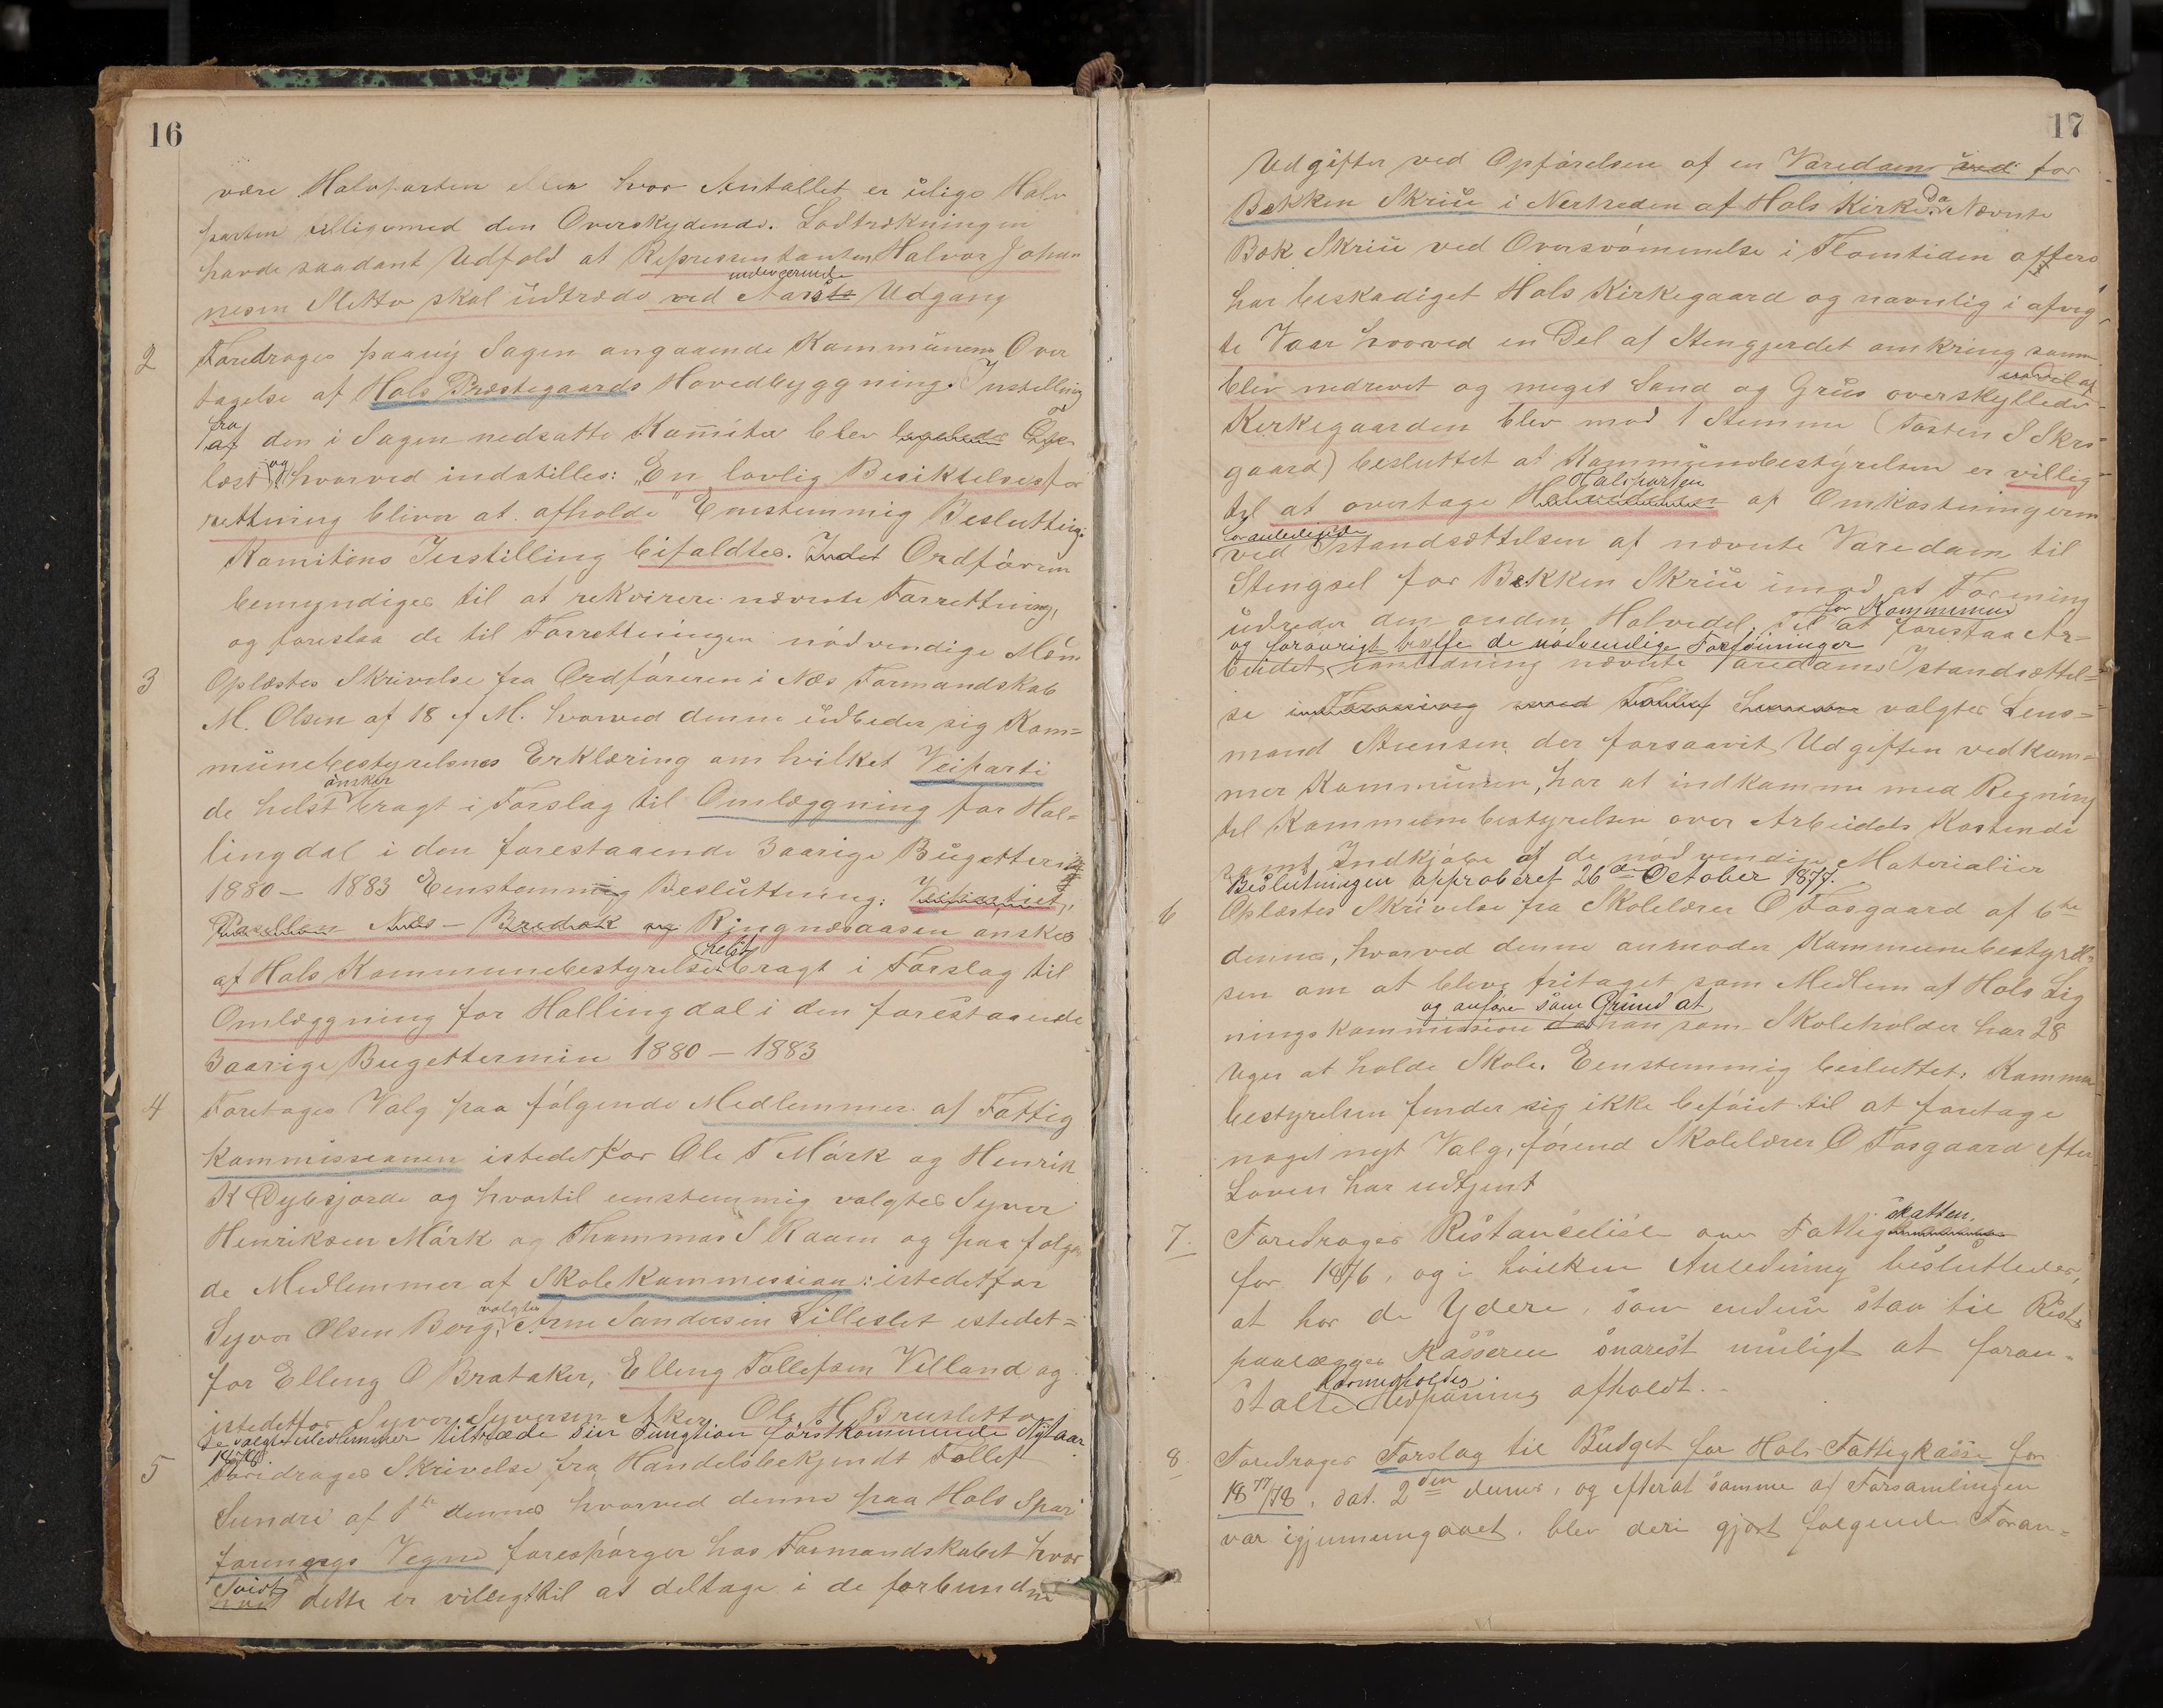 16
være Halvparten eller hvor Antallet er ulige Halv
parten tilligemed den Overskydende. Lodtrækningen
havde saadant Udfald at Repræsentanten Halvor Johan
nesen Sletto skal udtræde ved Aarets Udgang
indeværende
2 Foredroges paany Sagen angaaende Kommunens Over
tagelse af Hols Præstegaards Hovedbyggning. Instilling
fra
af den i Sagen nedsatte Komite blev op
læst og hvorved indstilles: "En lovlig Besiktelsesfor
rettning bliver at afholde" Enstemmig Besluttning:
Komiteens Instilling bifaldtes. Indet Ordføren
bemyndiges til at rekvirere nævnte Forrettning,
og forestaa de til Forrettningen nödvendige Mæn
3 Oplæstes Skrivelse fra Ordföreren i Næs Formandskab
M. Olsen af 18 f M. hvorved denne udbeder sig Kom=
munebestyrelsnes Erklæring om hvilket Veiparti
önskes
de helst bragt i Forslag til Omlæggning for Hal=
lingdal i den forestaaende 3aarige Bugettermin
1880 - 1883 Eenstemmig Besluttning: Veipartiet,
Næs - Bredok og Ringnæsaasen ønskes
helst
af Hols Kommunebestyrelse bragt i Forslag til
Omlæggning for Hallingdal i den forestaaende
3aarige Bugettermin 1880 - 1883
4 Foretoges Valg paa fölgende Medlemmer af Fattig
kommissionen istedetfor Ole T Mörk og Henrik
K Dybsjorde og hvortil eenstemmig valgtes Syver
Henriksen Mörk og Thommas S Raam og paa fölgen
de Medlemmer af Skolekommission: istedetfor
valgtes
Syver Olsen Borg, Arne Sandersen Lilleslet istedet=
for Elling O Brataker, Elling Tollefsen Villand og
istedetfor Syver Syversen Aker Ole H Brusletto
De valgte Medlemmer tiltræde sin Fungtion förstkommende Nytaar
1878.
5 Foredroges Skrivelse fra Handelsbetjendt Tollef
Sundre af 1te dennes hvorved denne paa Hols Spare
forenings Vegne forespørger hos Formandskabet hvor
vidt dette er villigt til at deltage i de forbundne
17
Udgifter ved Opförelsen af en Varedam ved for
Bekken Skriu i Nerheden af Hols Kirke. Da Nævnte
Bæk Skriu ved Oversvömmelse i Flomtiden oftere
har beskadiget Hols Kirkegaard og navnlig i afvig
te Vaar hvorved en Del af Stengjerdet omkring samme
blev nedrevet og meget Sand og Grus overskyllede
en Del af
Kirkegaarden blev mod 1 Stemme (Tosten S Skrs=
gaard) besluttet at Kommunebestyrelsen er villig
Halvparten
til at overtage Halvedelen af Omkostningerne
ved Istandsættelsen af nævnte Varedam til
Stengsel for Bekken Skriu imod at Forening
udreder den anden Halvedel. Til at forestaa Ar=
for Kommunen
og forøvrigt træffe de nödvendige Forföininger
beidet i anledning nævnte Varedams Istandsættel=
se valgtes Lens=
mand Stensen, der forsaavit Udgiften vedkom=
mer Kommunen, har at indkomme med Regning
til Kommunebestyrelsen over Arbeidets Kostende
samt Indkjöbe af de nödvendige Materialier
Beslutningen approberet 26de October 1877.
6 Oplæstes Skrivelse fra Skolelærer O Tosgaard af 6te
dennes, hvorved denne anmoder Kommunebestyrel=
sen om at blive fritaget som Medlem af Hols Lig
og anförer som Grund at
ningskommission da han som Skoleholder har 28
Uger at holde Skole. Eenstemmig besluttet: Kommune
bestyrelsen finder sig ikke beföiet til at foretage
noget nyt Valg, förend Skolelærer O Tosgaard efter
Loven har udtjent
7. Foredroges Restanceliste over Fattigskatten
for 1876, og i hvilken Anledning besluttedes,
at hos de Ydere, som endnu staa til Rest,
paalægges Kasseren snarest muligt at foran=
stalte Udpanting afholdt. -
8. Foredroges Forslag til Budget for Hols Fattigkasse for
1877/78, dat. 2den dennes, og efterat samme af Forsamlingen
var igjennemgaaet, blev deri gjort følgende Foran=